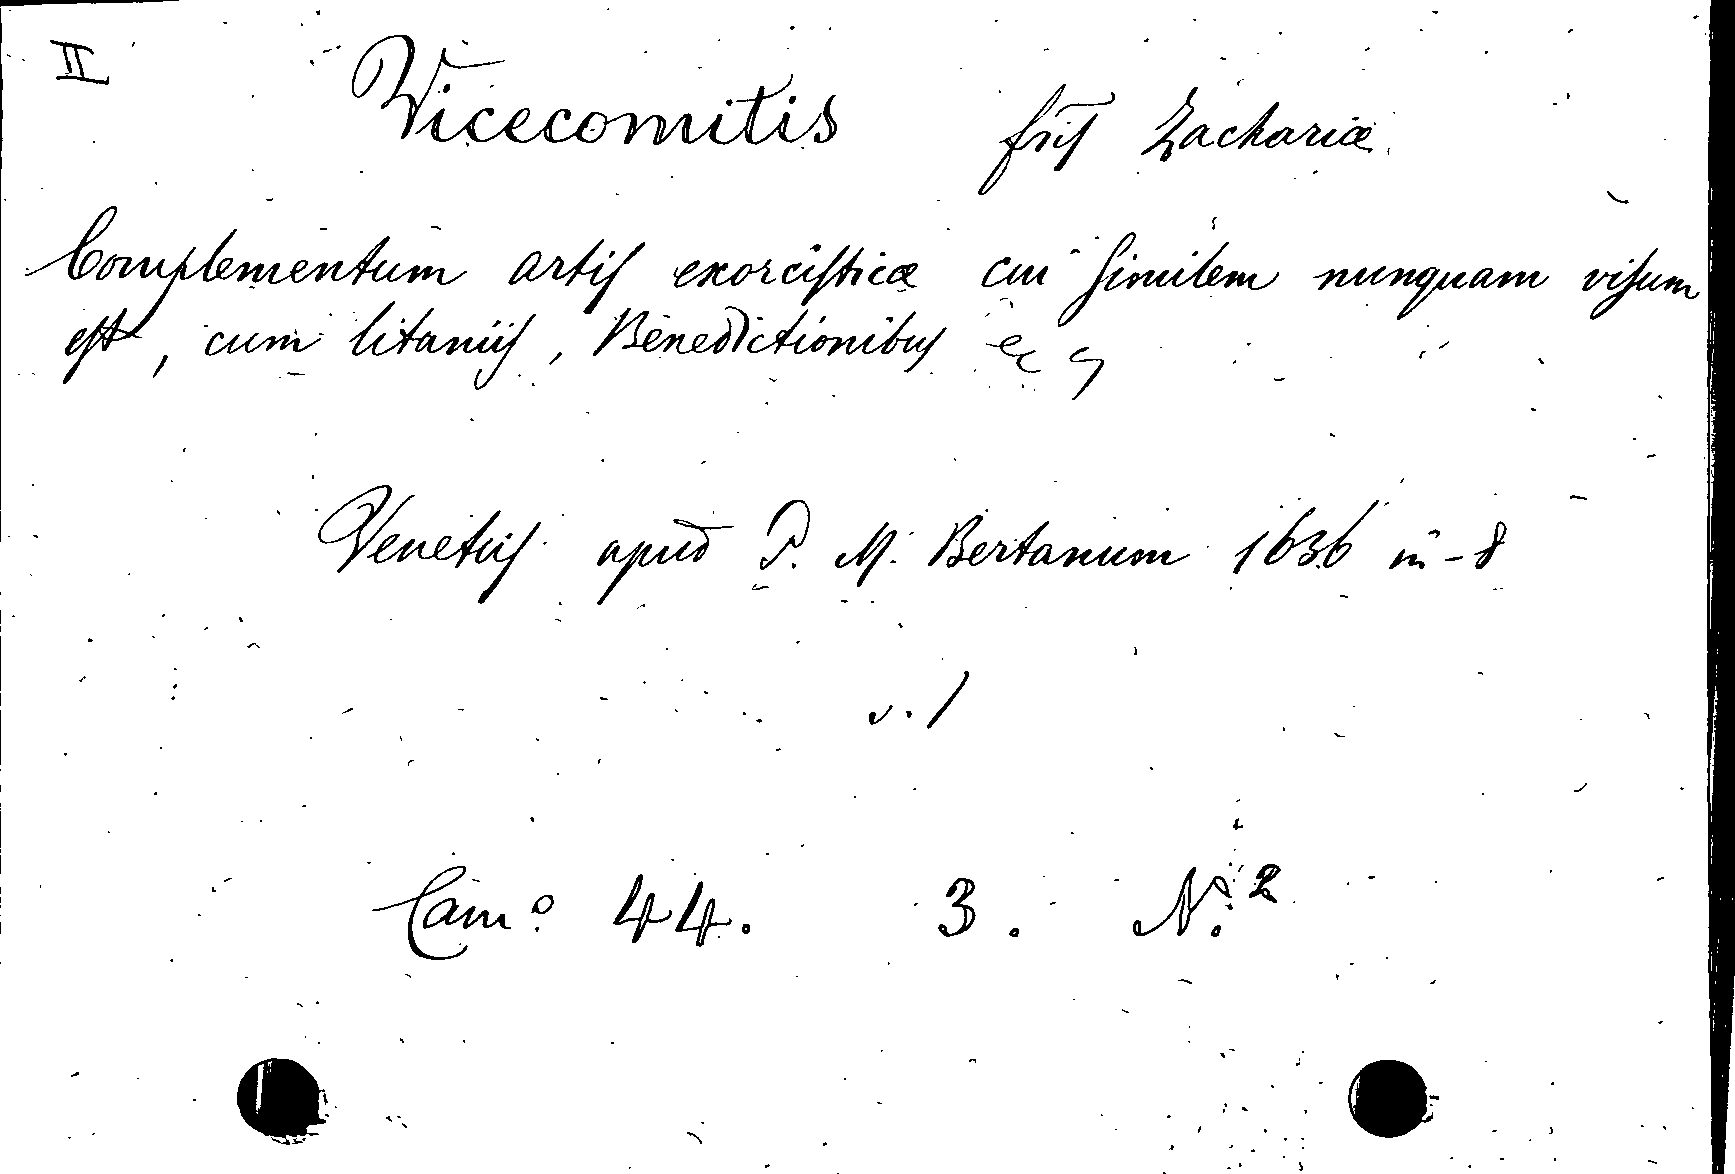 II Vicecomitis fris Zachariæ
Complementum artis exorcisticæ cui similem nunquam visum
est, cum litaniis, Benedictionibus &c
Venetiis apud P. M. Bertanum 1636 in-8
v. 1
Cam.º 44. 3. N.º 2